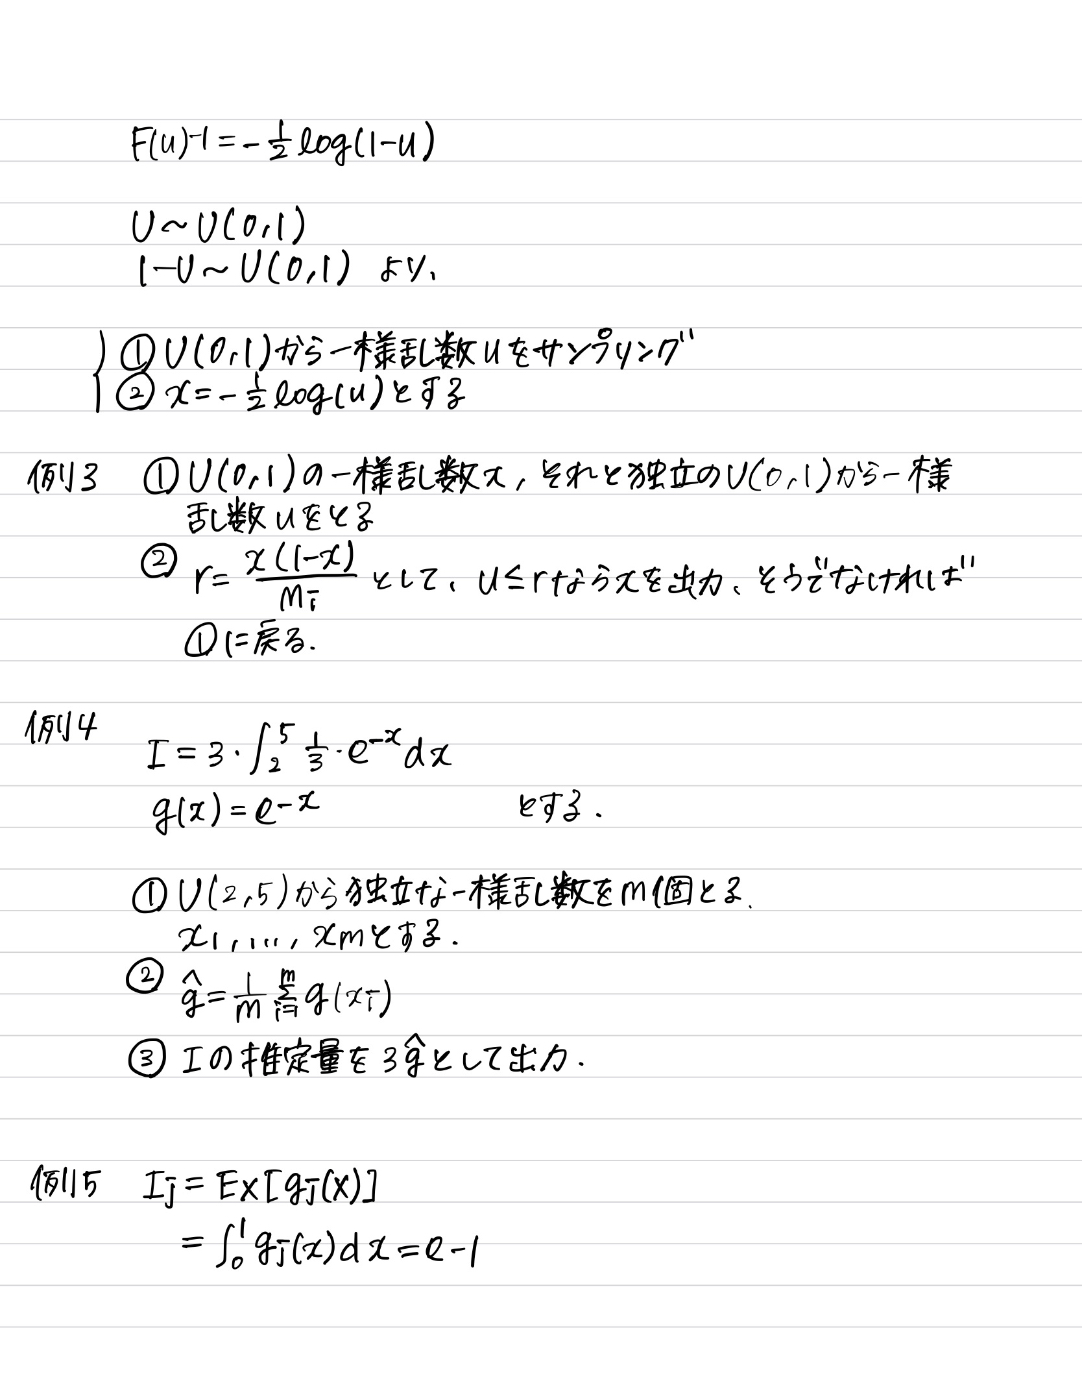 F(u)⁻¹ = -1/2 log(1-u)
U ~ U(0,1)
1-U ~ U(0,1) より、
① U(0,1)から一様乱数uをサンプリング
② x = -1/2 log(u)とする
例3 ① U(0,1)の一様乱数x, それと独立のU(0,1)から一様
乱数uをとる
② r = x(1-x)/Mi として、u≦rならxを出力、そうでなければ
①に戻る.
例4
I = 3・∫₂⁵ 1/3・e⁻ˣdx
g(x) = e⁻ˣ とする.
① U(2,5)から独立な一様乱数をm個とる.
x1, ..., xmとする.
② ĝ = 1/m Σᵢ₌₁ᵐ g(xi)
③ Iの推定量を3ĝとして出力.
例5 Ij = Ex[gj(X)]
= ∫₀¹ gj(x)dx = e-1